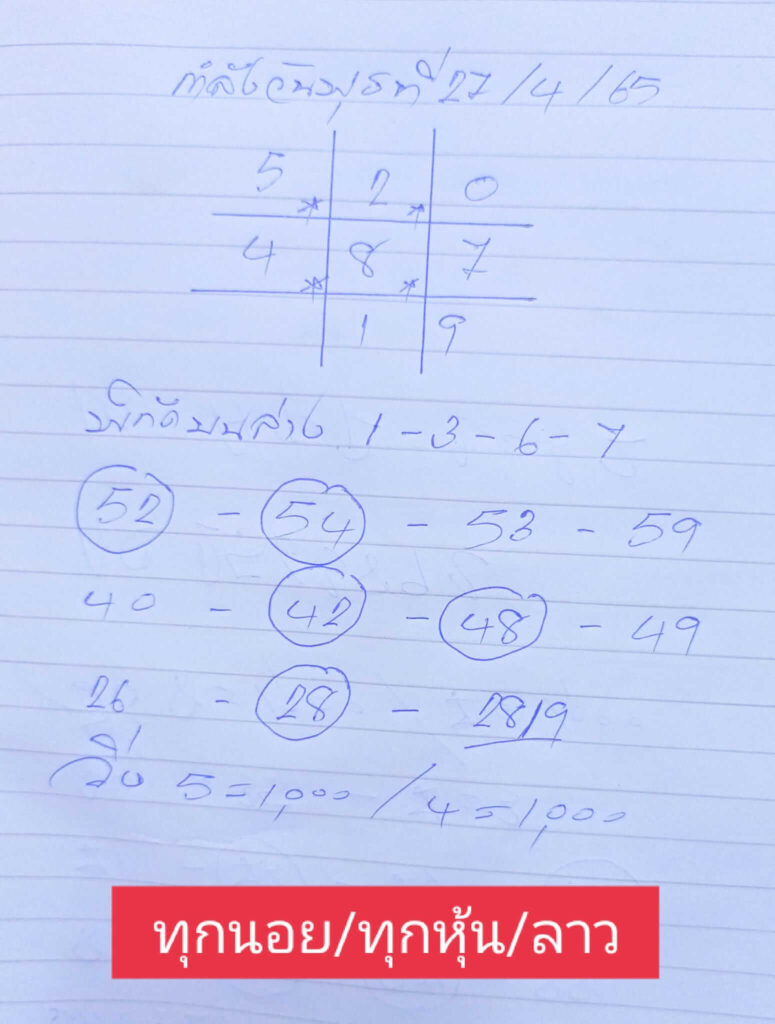 กำลังวันพุธที่ 27/4/65
5 2 0
4 8 7
1 9
พิกัดบนล่าง 1-3-6-7
52 - 54 - 53 - 59
40 - 42 - 48 - 49
26 - 28 - 2819
วิ่ง 5=1,000 / 4=1,000
ทุกนอย/ทุกหุ้น/ลาว